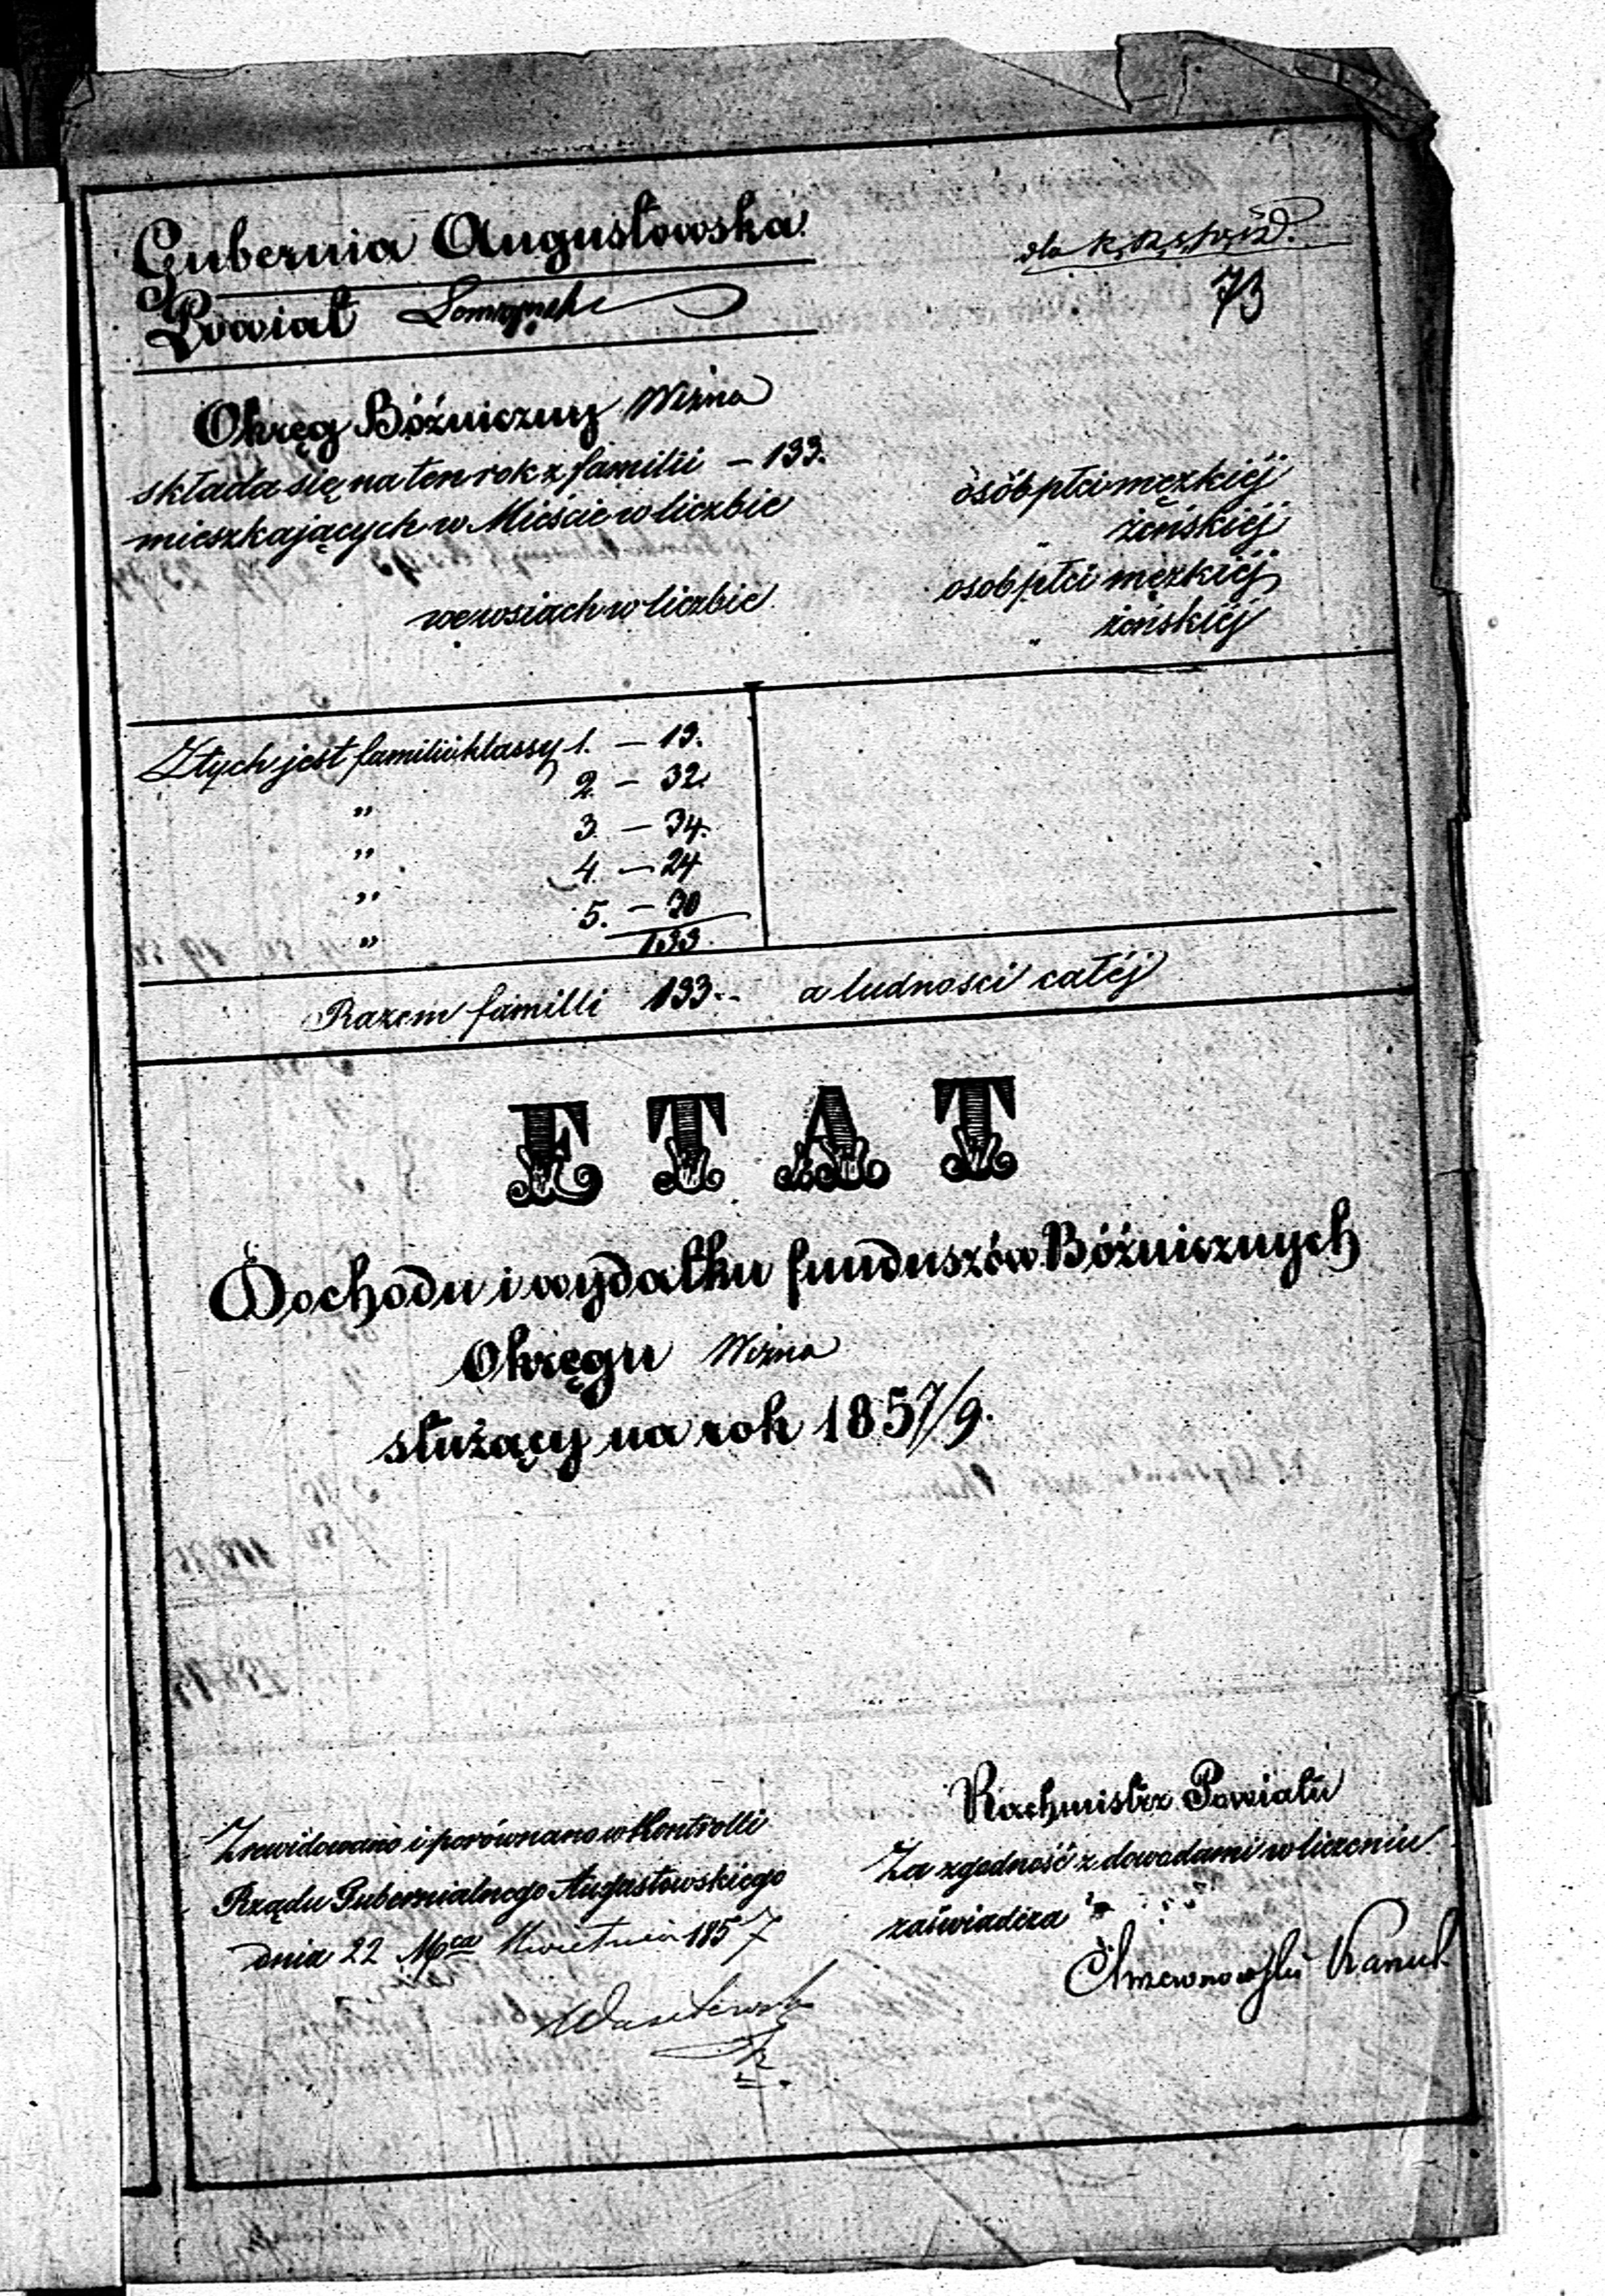 Gubernia Augustowska
dla
73
Powiat Łomżyński
Okręg Bóźniczny Wizna
składa się na ten rok z familii – 133.
mieszkających w Mieście w liczbie osób płci męzkiéj
" żeńskiéj
we wsiach w liczbie osob płci męzkiéj
" żeńskiéj
Z tych jest familii klassy 1. – 13.
" 2. – 32.
" 3. – 34.
" 4. – 24
" 5. – 30
133.
Razem familli 133.. a ludnosci całéj
ETAT
Dochodu i wydatku funduszów Bóźnicznych
Okręgu Wizna
służący na rok 1857/9.
Rachmistrz Powiatu
Zrewidowano i porównano w Kontrolli
Za zgodność z dowodami w liczeniu
Rządu Gubernialnego Augustowskiego
zaświadcza
dnia 22 Mca Kwietnia 1857